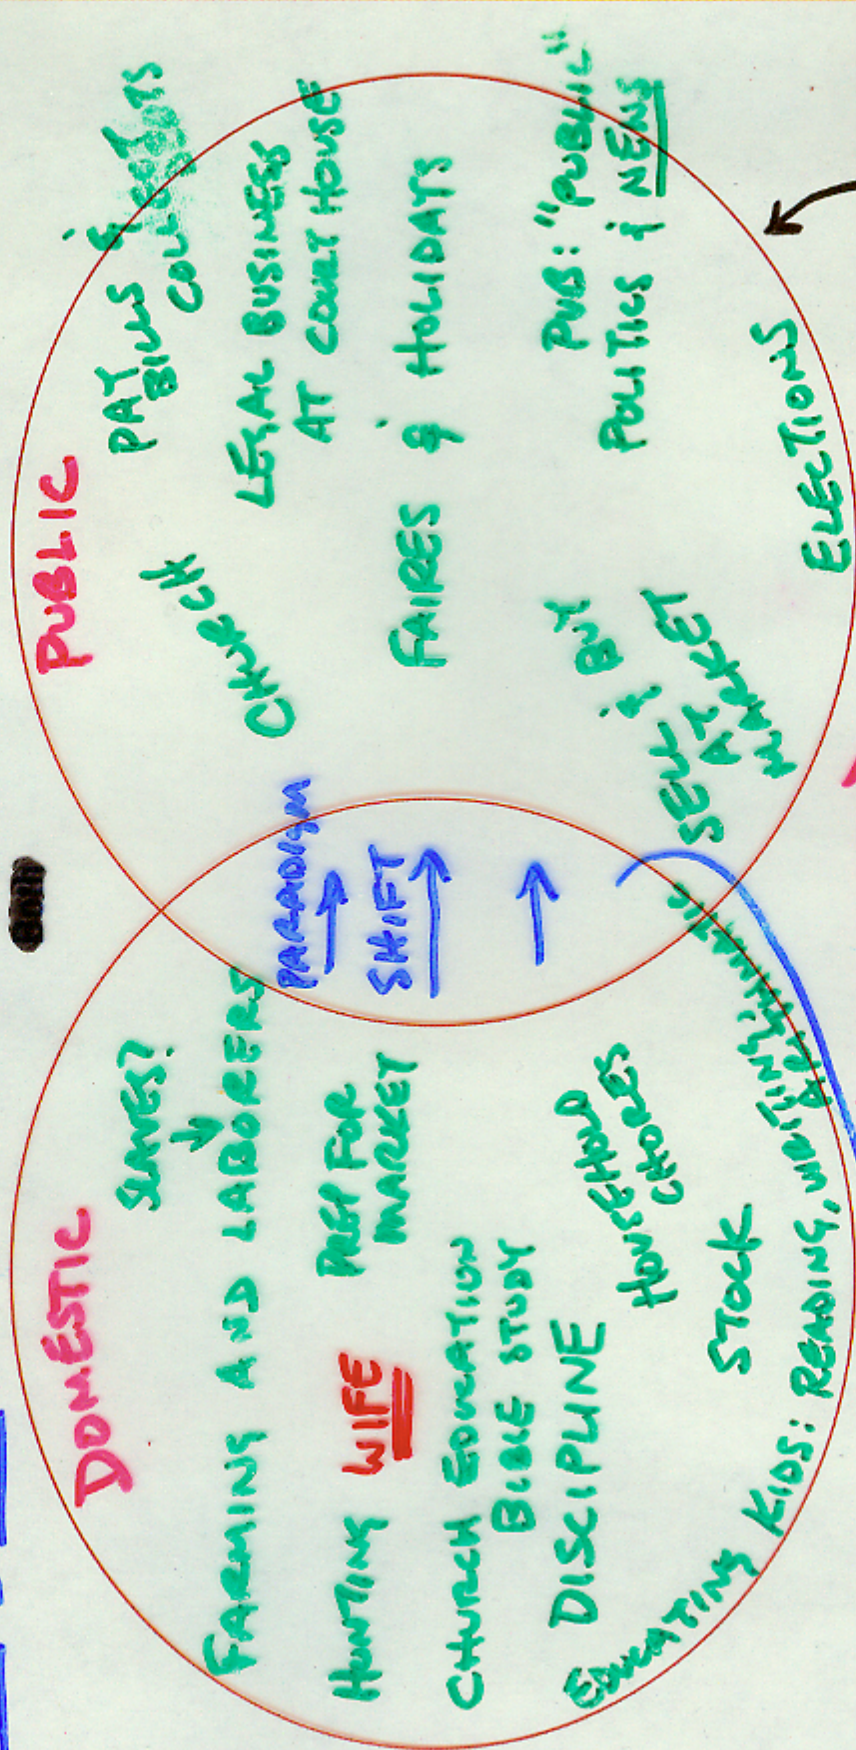 DOMESTIC
SLAVES?
FARMING AND LABORERS
HUNTING WIFE PREP FOR
MARKET
CHURCH EDUCATION
BIBLE STUDY
DISCIPLINE
HOUSEHOLD
CHORES
STOCK
EDUCATING KIDS: READING, WRITING, ARITHMATIC
PARADIGM
SHIFT
PUBLIC
CHURCH
PAY
BILLS &
COLLECT
LEGAL BUSINESS
AT COURT HOUSE
FAIRES & HOLIDAYS
PUB: "PUBLIC"
POLITICS & NEWS
SELL & BUY
AT
MARKET
ELECTIONS